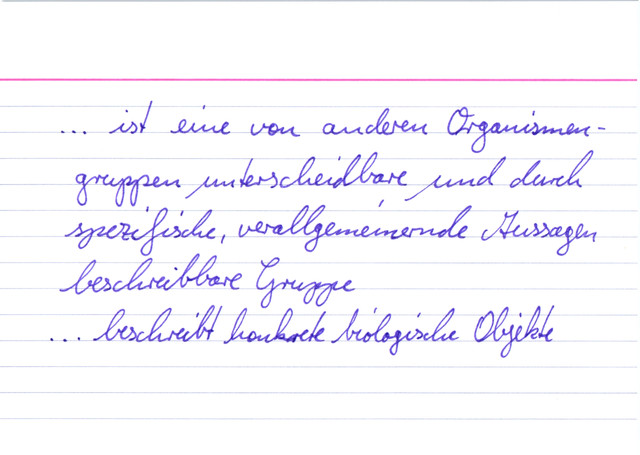 ... ist eine von anderen Organismen-
gruppen unterscheidbare und durch
spezifische, verallgemeinernde Aussagen
beschreibbare Gruppe
... beschreibt konkrete biologische Objekte